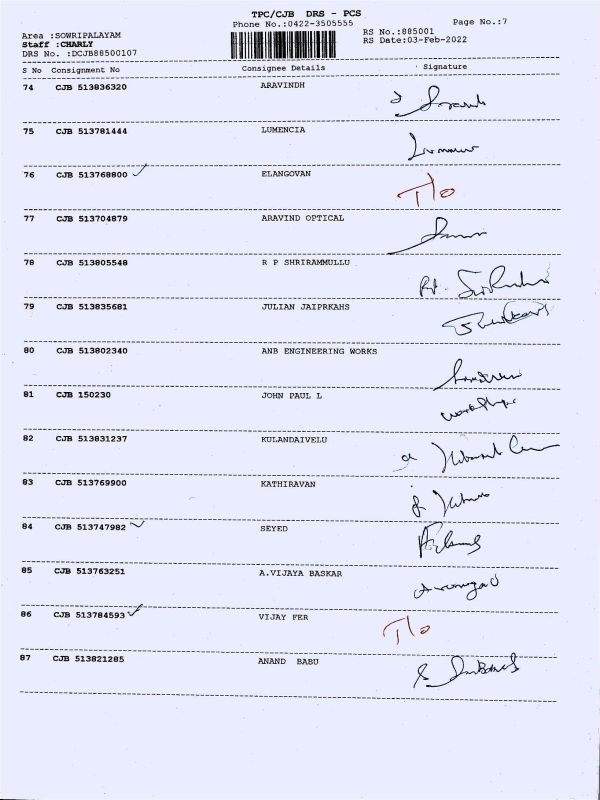 TPC/CJB DRS - PCS
Phone No.:0422-3505555
Page No.:7
Area :SOWRIPALAYAM
Staff :CHARLY
DRS No. :DCJB88500107
RS No.:885001
RS Date:03-Feb-2022
S No Consignment No Consignee Details Signature
74 CJB 513836320 ARAVINDH
75 CJB 513781444 LUMENCIA
76 CJB 513768800 ELANGOVAN T/o
77 CJB 513704879 ARAVIND OPTICAL
78 CJB 513805548 R P SHRIRAMMULLU
79 CJB 513835681 JULIAN JAIPRKAHS
80 CJB 513802340 ANB ENGINEERING WORKS
81 CJB 150230 JOHN PAUL L
82 CJB 513831237 KULANDAIVELU
83 CJB 513769900 KATHIRAVAN
84 CJB 513747982 SEYED
85 CJB 513763251 A.VIJAYA BASKAR
86 CJB 513784593 VIJAY FER T/o
87 CJB 513821285 ANAND BABU